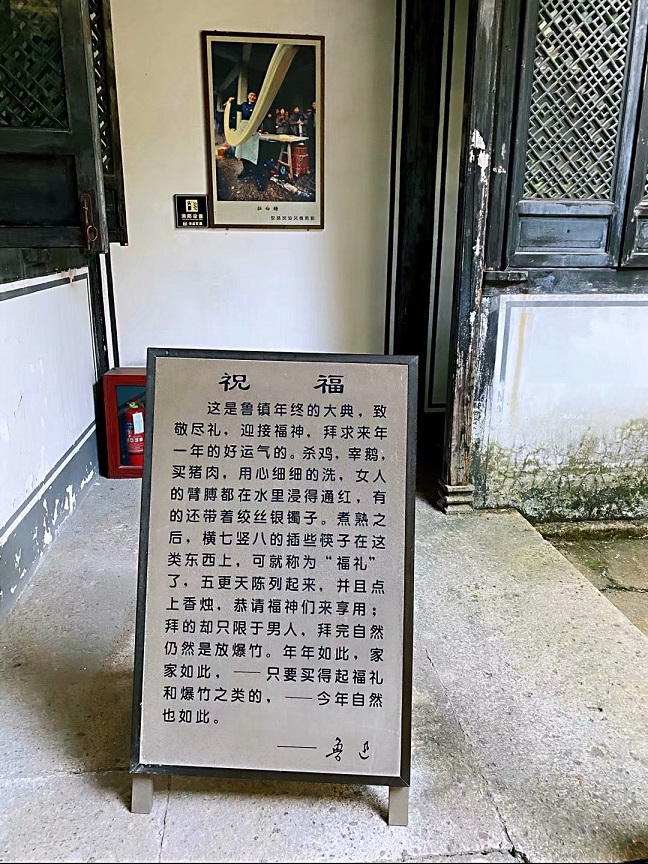 拉白糖
祝 福
这是鲁镇年终的大典，致
敬尽礼，迎接福神，拜求来年
一年的好运气的。杀鸡，宰鹅，
买猪肉，用心细细的洗，女人
的臂膊都在水里浸得通红，有
的还带着绞丝银镯子。煮熟之
后，横七竖八的插些筷子在这
类东西上，可就称为“福礼”
了，五更天陈列起来，并且点
上香烛，恭请福神们来享用；
拜的却只限于男人，拜完自然
仍然是放爆竹。年年如此，家
家如此，——只要买得起福礼
和爆竹之类的，——今年自然
也如此。
——鲁迅